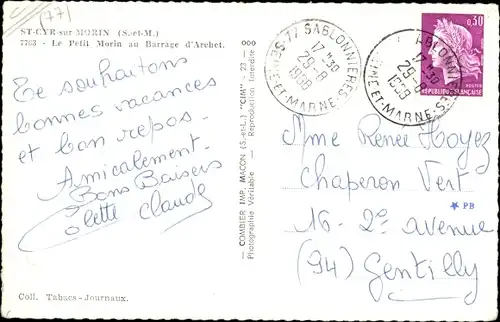 (77)
ST-CYR-sur MORIN (S.-et-M.)
7763 - Le Petit Morin au Barrage d'Archet.
Te souhaitons
bonnes vacances
et bon repos.
Amicalement.
Bons Baisers
Colette Claude
Coll. Tabacs-Journaux.
— COMBIER IMP. MACON (S.-et-L.) "CIM" — 23 — ooo
Photographie Véritable - Reproduction Interdite
77 SABLONNIERES
17H30
29-8
1968
SEINE-ET-MARNE
77 SABLONNIERES
17H30
29-8
1968
SEINE-ET-MARNE
0,30
POSTES
REPUBLIQUE FRANÇAISE
Mme Renée Hoyez
Chaperon Vert
16 - 2e avenue
* PB
(94) Gentilly